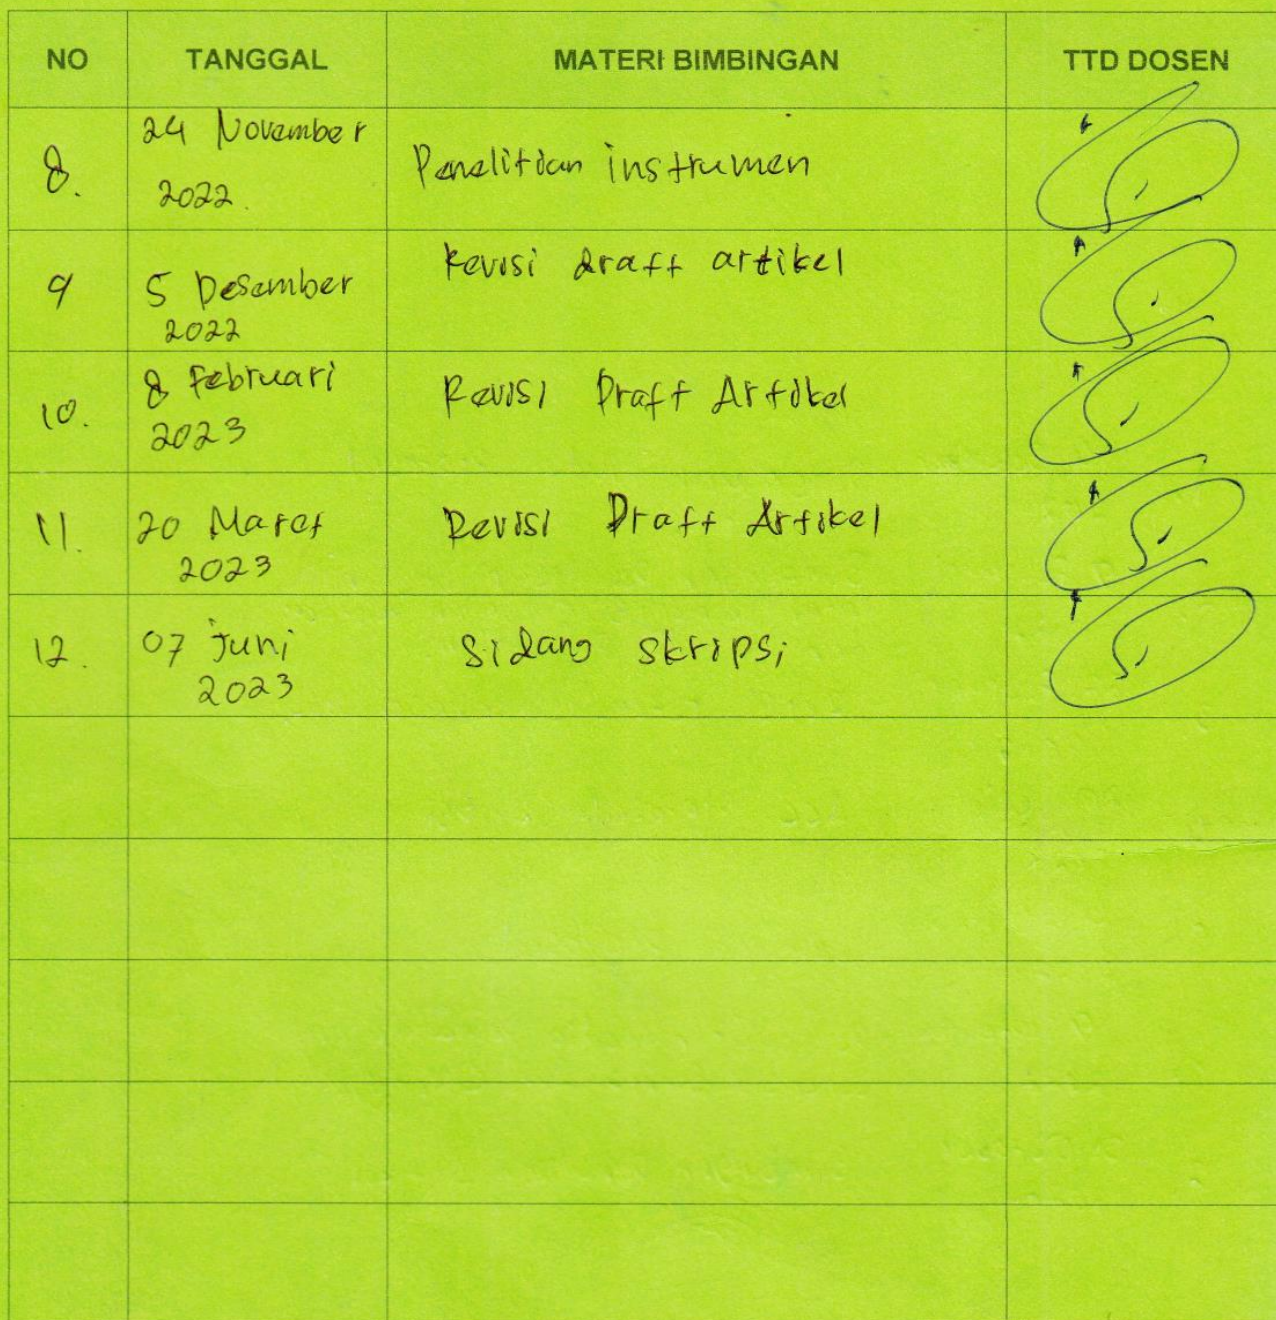 NO TANGGAL MATERI BIMBINGAN TTD DOSEN
8. 24 November 2022. Penelitian instrumen
9 5 Desember 2022 Revisi draft artikel
10. 8 Februari 2023 Revisi Draft Artikel
11. 20 Maret 2023 Revisi Draft Artikel
12. 07 Juni 2023 Sidang skripsi